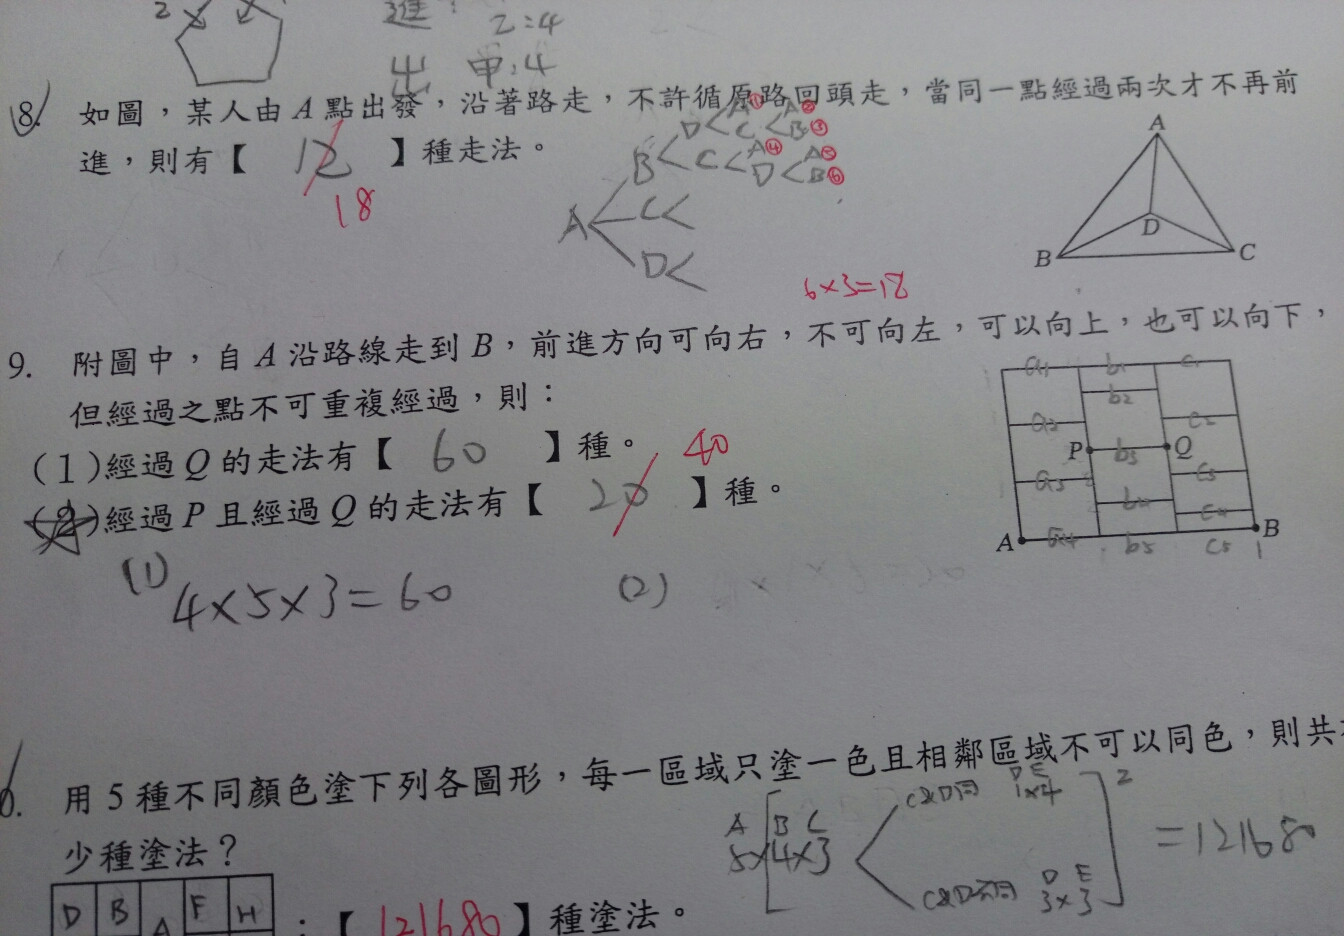 2
進:
乙:4
出 甲:4
8. 如圖，某人由 A 點出發，沿著路走，不許循原路回頭走，當同一點經過兩次才不再前
進，則有【 12 】種走法。
18
A
B
C
D
D
C
A①
C
A②
B③
A④
D
A⑤
B⑥
6×3=18
A
B
C
D
9. 附圖中，自 A 沿路線走到 B，前進方向可向右，不可向左，可以向上，也可以向下，
但經過之點不可重複經過，則：
(1)經過 Q 的走法有【 60 】種。
(2)經過 P 且經過 Q 的走法有【 20 】種。
40
(1) 4×5×3=60
(2)
a1 b1 c1
b2
a2 c2
P b3 Q
a3 c3
b4 c4
A a4 b5 c5 B
用 5 種不同顏色塗下列各圖形，每一區域只塗一色且相鄰區域不可以同色，則共
少種塗法？
A [B C
5×[4×3
C&D同 D E
1×4
C&D不同 D E
3×3
]2
=121680
D B A F H
：【 121680 】種塗法。